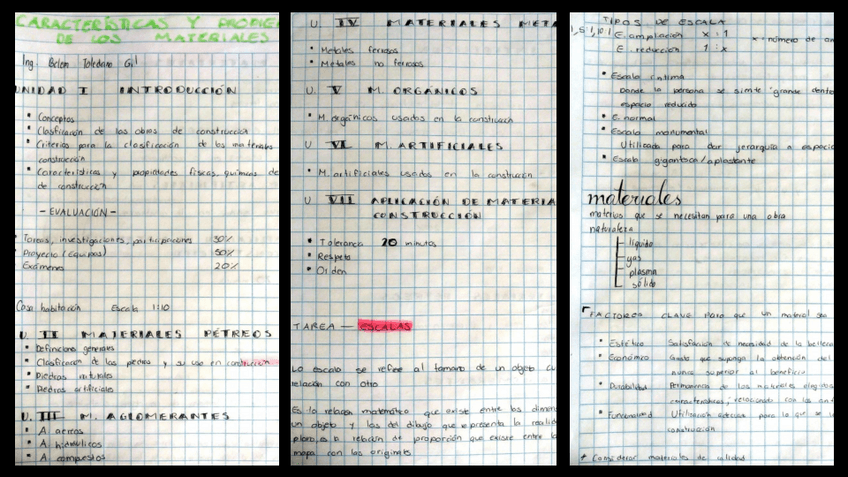 CARACTERÍSTICAS Y PROPIE
DE LOS MATERIALES
Ing. Belen Toledano Gil
UNIDAD I INTRODUCCIÓN
• Conceptos
• Clasificación de las obras de construcción
• Criterios para la clasificación de los materiales
construcción
• Características y propiedades físicas, químicas de
de construcción
- EVALUACIÓN -
• Tareas, investigaciones, participaciones 30%
• Proyecto (Equipos) 50%
Exámenes 20%
Casa habitación Escala 1:10
U. II MATERIALES PÉTREOS
• Definiciones generales
• Clasificación de las piedras y su uso en construcción
• Piedras naturales
• Piedras artificiales
U. III M. AGLOMERANTES
• A. aereos
• A. hidráulicos
• A. compuestos
U. IV MATERIALES META
• Metales ferrosos
• Metales no ferrosos
U. V M. ORGÁNICOS
• M. orgánicos usados en la construcción
U. VI M. ARTIFICIALES
• M. artificiales usados en la construcción
U VII APLICACIÓN DE MATERIA
CONSTRUCCIÓN
• Tolerancia 20 minutos
• Respeto
• Orden
TAREA — ESCALAS
La escala se refiere al tamaño de un objeto cu
relación con otro
Es la relación matemática que existe entre las dimen
un objeto y las del dibujo que representa la realid
plano, es la relación de proporción que existe entre la
mapa con las originales
TIPOS DE ESCALA
E. ampliación x : 1 x = número de
E. reducción 1 : x
• Escala íntima
Donde la persona se siente grande dentro
espacio reducido
• E. normal
• Escala monumental
Utilizada para dar jerarquía a espacio
• Escala gigantesca / aplastante
materiales
materias que se necesitan para una obra
naturaleza
líquido
gas
plasma
sólido
FACTORES CLAVE para que un material sea
• Estético Satisfacción de necesidad de la belleza
• Económico Gasto que suponga la obtención del
nunca superior al beneficio
• Durabilidad Permanencia de los materiales elegidos
características, relacionado con los
• Funcionalidad Utilización adecuada para lo que se
construcción
* Considerar materiales de calidad